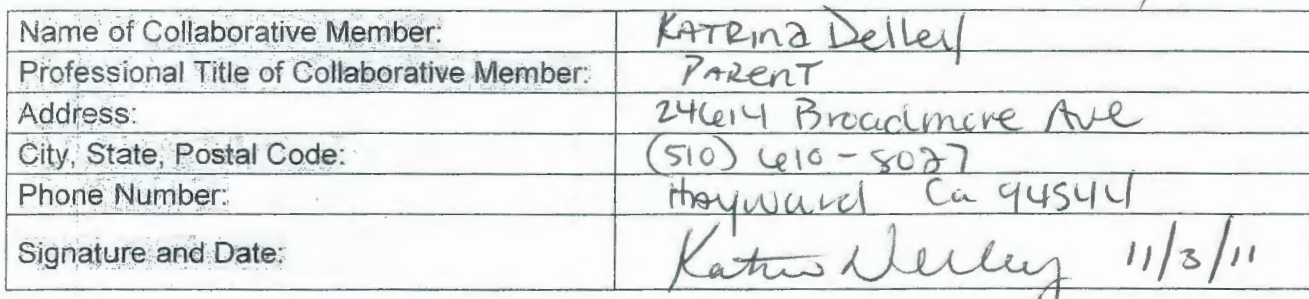 Name of Collaborative Member: KATRina Delley
Professional Title of Collaborative Member: PARenT
Address: 24614 Broadmore Ave
City, State, Postal Code: (510) 610-8027
Phone Number: Hayward Ca 94544
Signature and Date: Katrina Delley 11/3/11